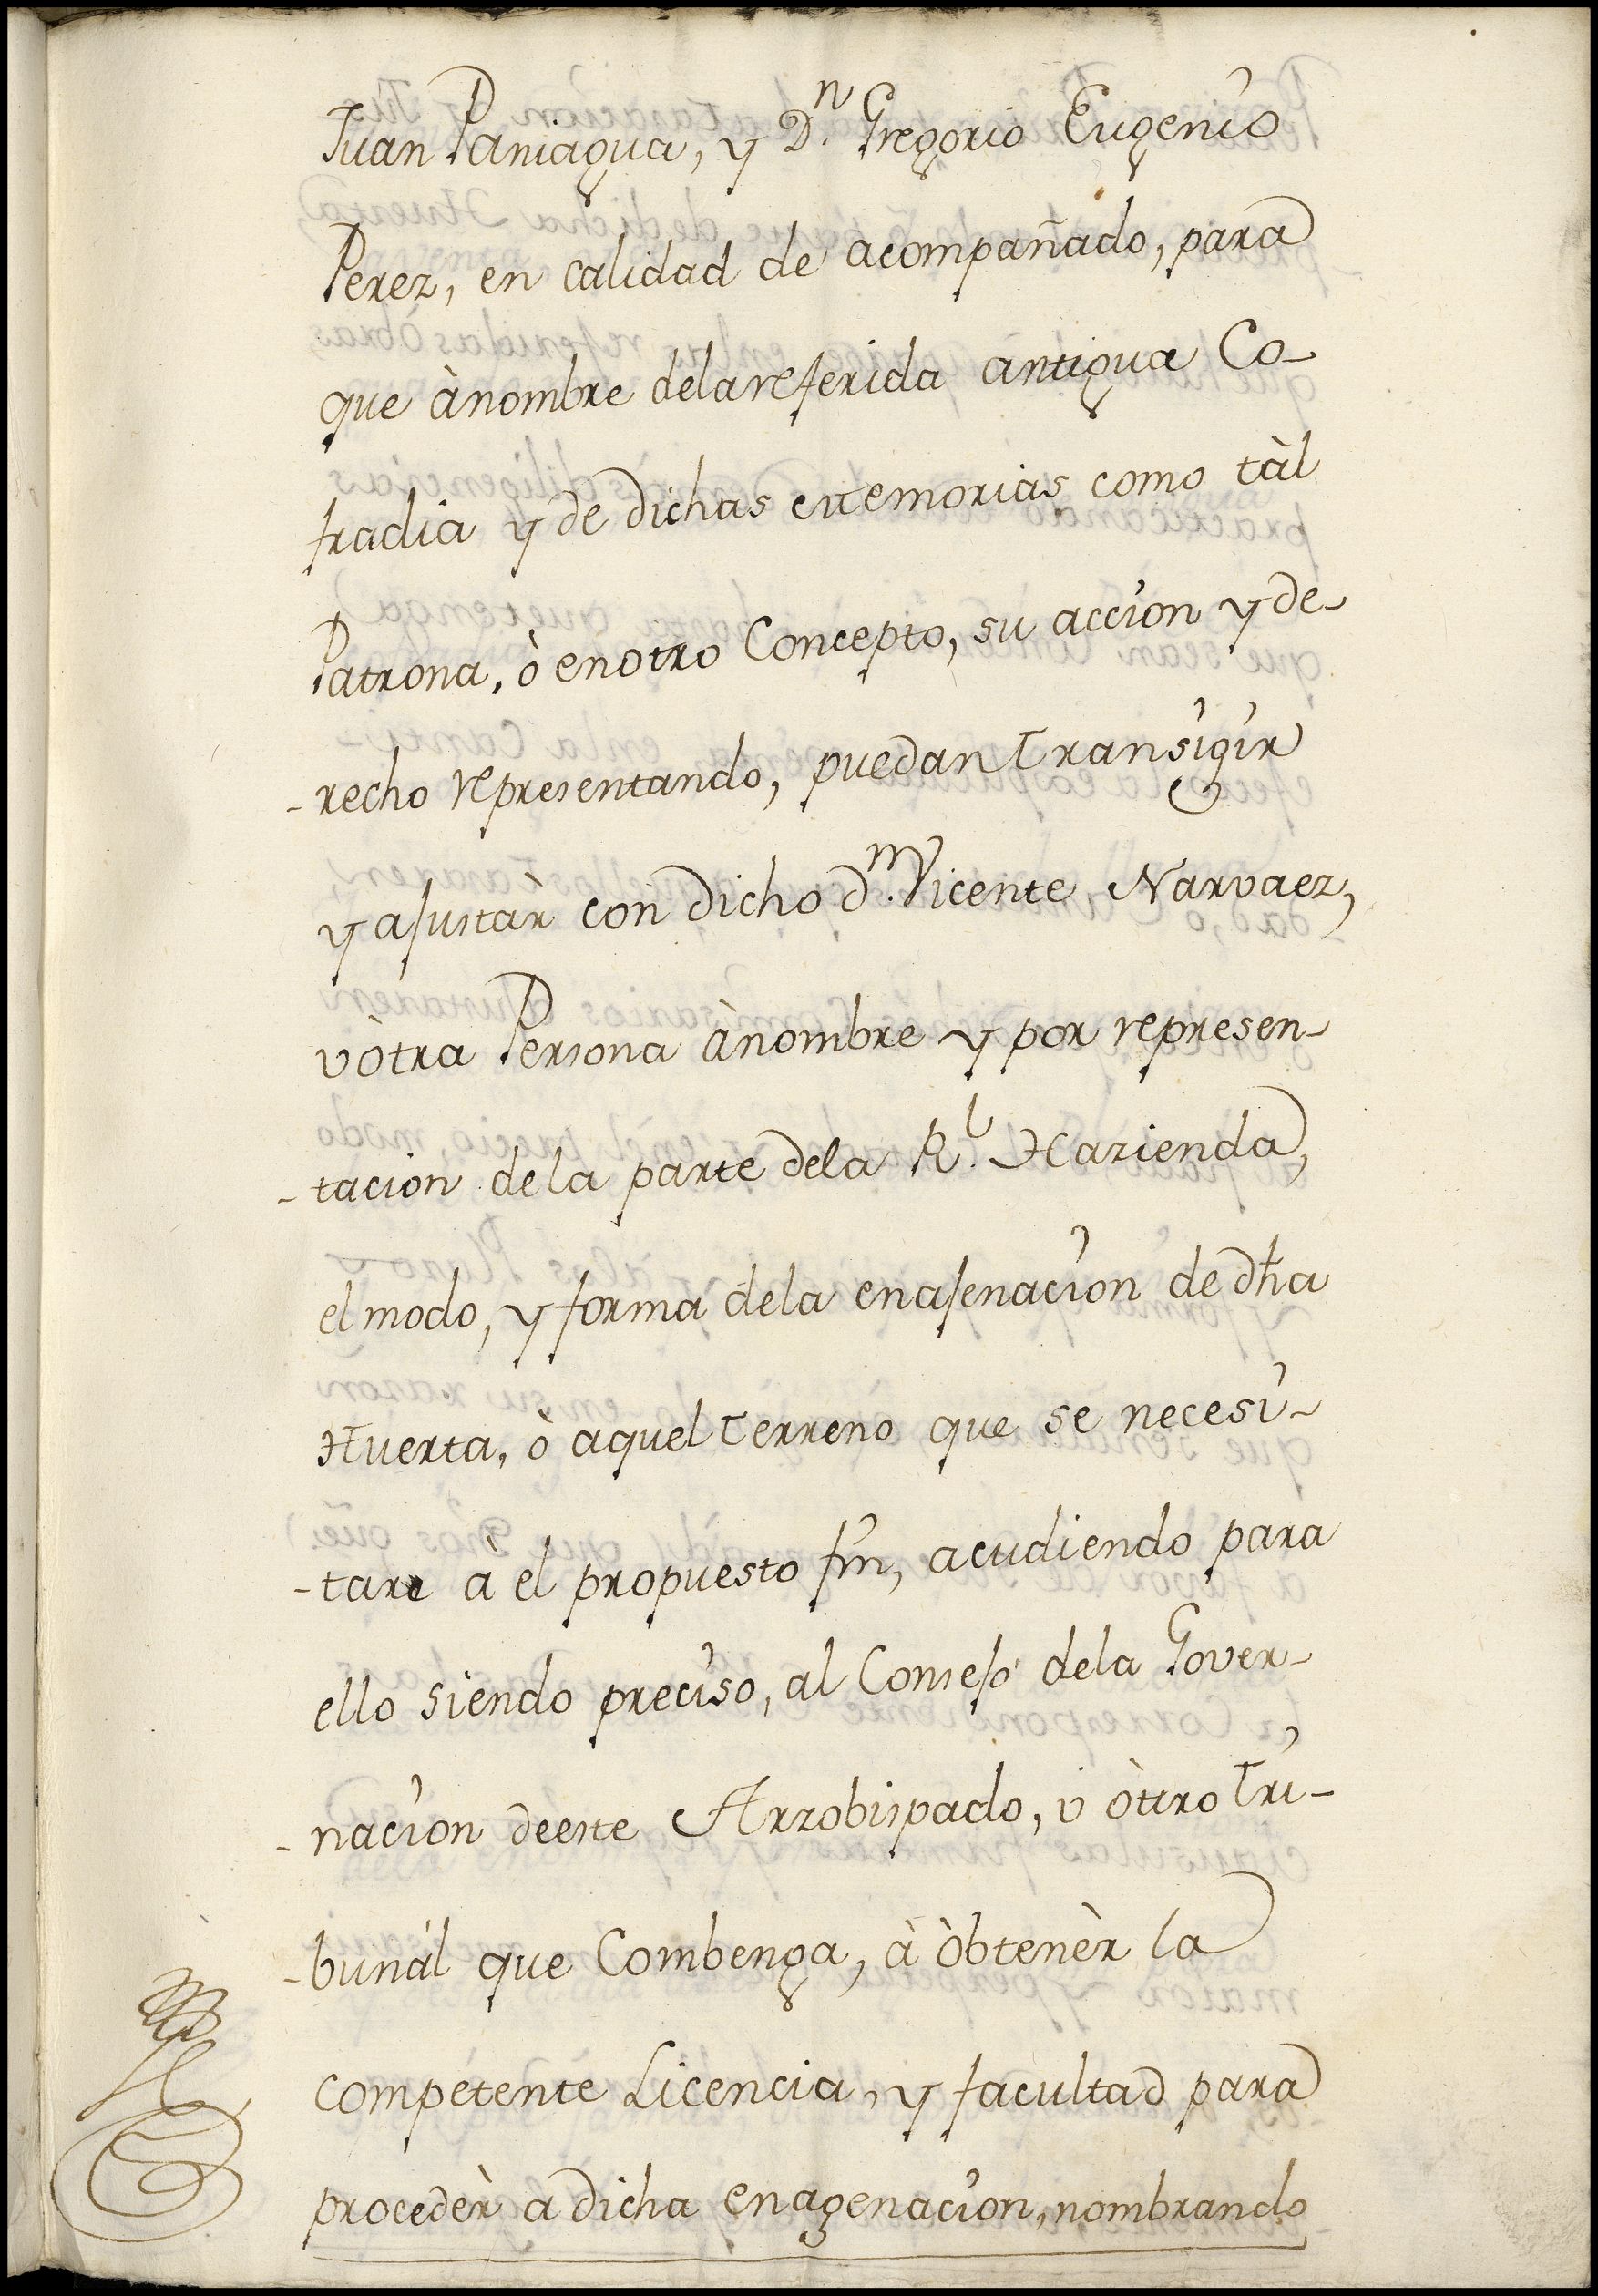 Juan Paniagua, y Dn. Gregorio Eugenio
Perez, en calidad de acompañado, para
que ànombre delareferida antigua Co-
fradia y de dichas Memorias como tàl
Patrona, ò enotro Concepto, su accion y de-
-recho representando, puedan Transigir
y ajustar con dicho dn. Vicente Narvaez,
vòtra Persona ànombre y por represen-
-tacion de la parte dela Rl. Hazienda,
el modo, y forma dela enajenacion de dha
Huerta, ò aquel Terreno que se necesi-
-tare a el propuesto fin, acudiendo para
ello siendo preciso, al Consejo dela Gover-
-nacion deeste Arzobispado, v òtro Tri-
-bunàl que Combenga, à òbtenèr la
competente Licencia, y facultad para
procedèr a dicha enagenacion, nombrando